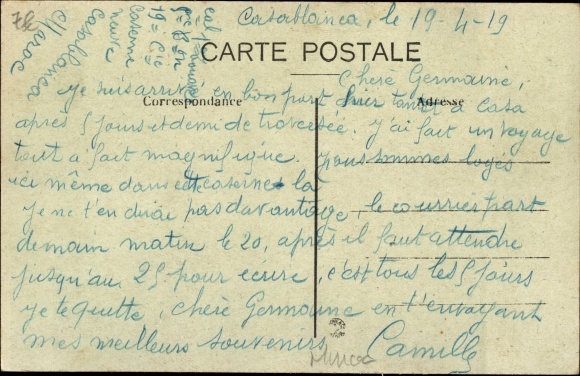 Casablanca, le 19-4-19
CARTE POSTALE
Correspondance
Adresse
Chère Germaine,
Je suis arrivé en bon port hier tantôt à Casa
après 5 jours et demi de traversée. J'ai fait un voyage
tout a fait magnifique. Nous sommes logés
ici même dans cette caserne là
Je ne t'en dirai pas davantage, le courrier part
demain matin le 20, après il faut attendre
jusqu'au 25 pour écrire, c'est tous les 5 jours
Je te quitte, chère Germaine en t'envoyant
mes meilleurs souvenirs
Camille
19e Cie
Caserne
neuve
Casablanca
Maroc
Maroc